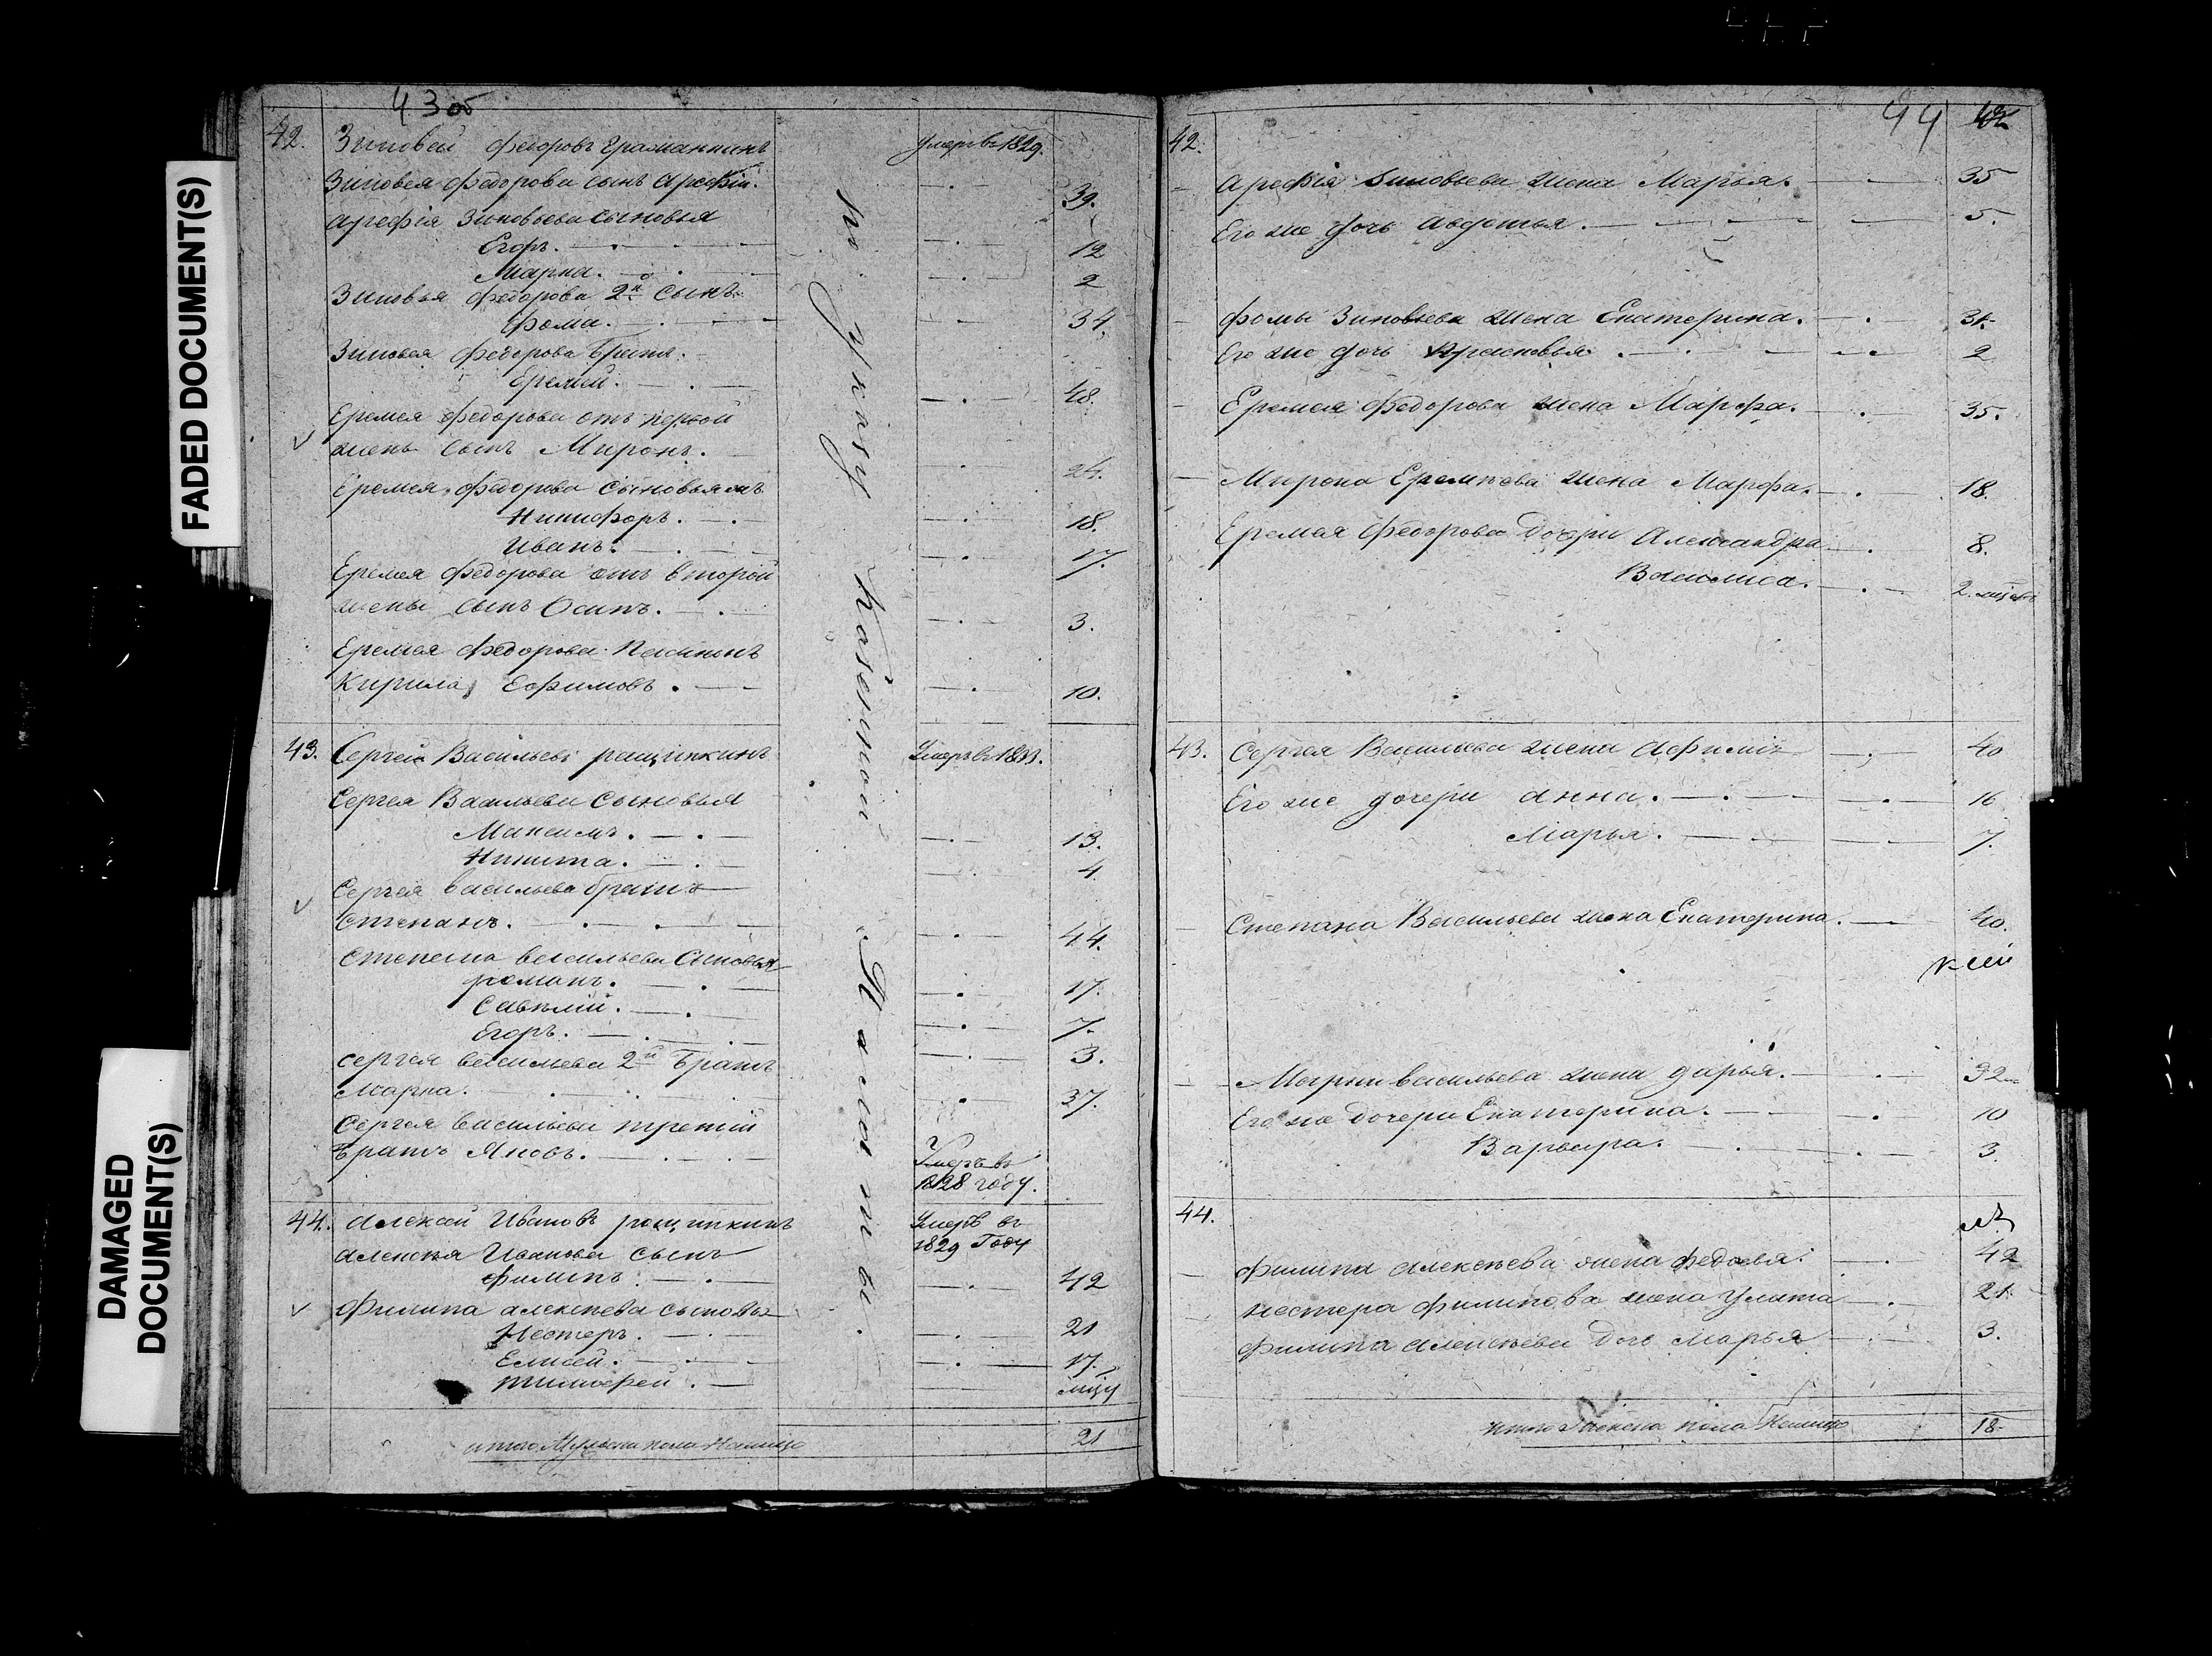 FADED DOCUMENT(S)
DAMAGED DOCUMENT(S)
43 об
42. Зиновей Федоровъ
умеръ въ 1829.
Зиновея Федорова сынъ Арефiй. 39.
Арефiя Зиновьева сыновья
Егоръ. 12
Марка. 2
Зиновья Федорова 2й сынъ
Фома. 34.
Зиновея Федорова братъ.
Еремей. 48.
Еремея Федорова отъ первой
жены сынъ Миронъ. 24.
Еремея Федорова сыновья
Никифоръ. 18.
Иванъ. 17.
Еремея Федорова отъ второй
жены сынъ Осипъ. 3.
Еремея Федорова
Кирила Ефимовъ. 10.
43. Сергей Васильевъ ращупкинъ
Умеръ въ 1833.
Сергея Васильева сыновья
Максимъ. 13.
Никита. 4
Сергея васильева братъ
Степанъ. 44.
Степана васильева сыновья
романъ. 17.
Савелiй. 7.
Егоръ. 3.
Сергея васильева 2й братъ
Марка. 37.
Сергея васильева третiй
братъ Яковъ.
Умеръ въ
1828 году.
44. Алексей Ивановъ ращупкинъ
Умеръ въ
1829 Году
Алексея Иванова сынъ
Филипъ. 42
Филипа алексеева сыновья
Нестеръ. 21
Елисей. 17.
тимофей.
итого Мужска пола Налицо 21
по указу Казенной Палаты.
44
42.
Арефiя Зиновьева жена Марья. 35
Его же дочь Авдотья. 5.
Фомы Зиновьева жена Екатерина. 31.
Его же дочь Прасковья. 2
Еремея Федорова жена Марфа. 35.
Мирона Еремеева жена Марфа. 18.
Еремея Федорова Дочери Александра 8.
Василиса. 2.
43. Сергея Васильева жена Афимiя 40
Его же дочери Анна. 16
Марья. 7.
Степана Васильева жена Екатерина. 40.
васильева жена дарья. 32
Его же дочери Екатерина. 10
Варвара. 3.
44.
Филипа алексеева жена Федосья. 42
Нестера Филипова жена Улита 21.
Филипа алексеева Дочь Марья 3.
итого Женска пола Налицо 18.